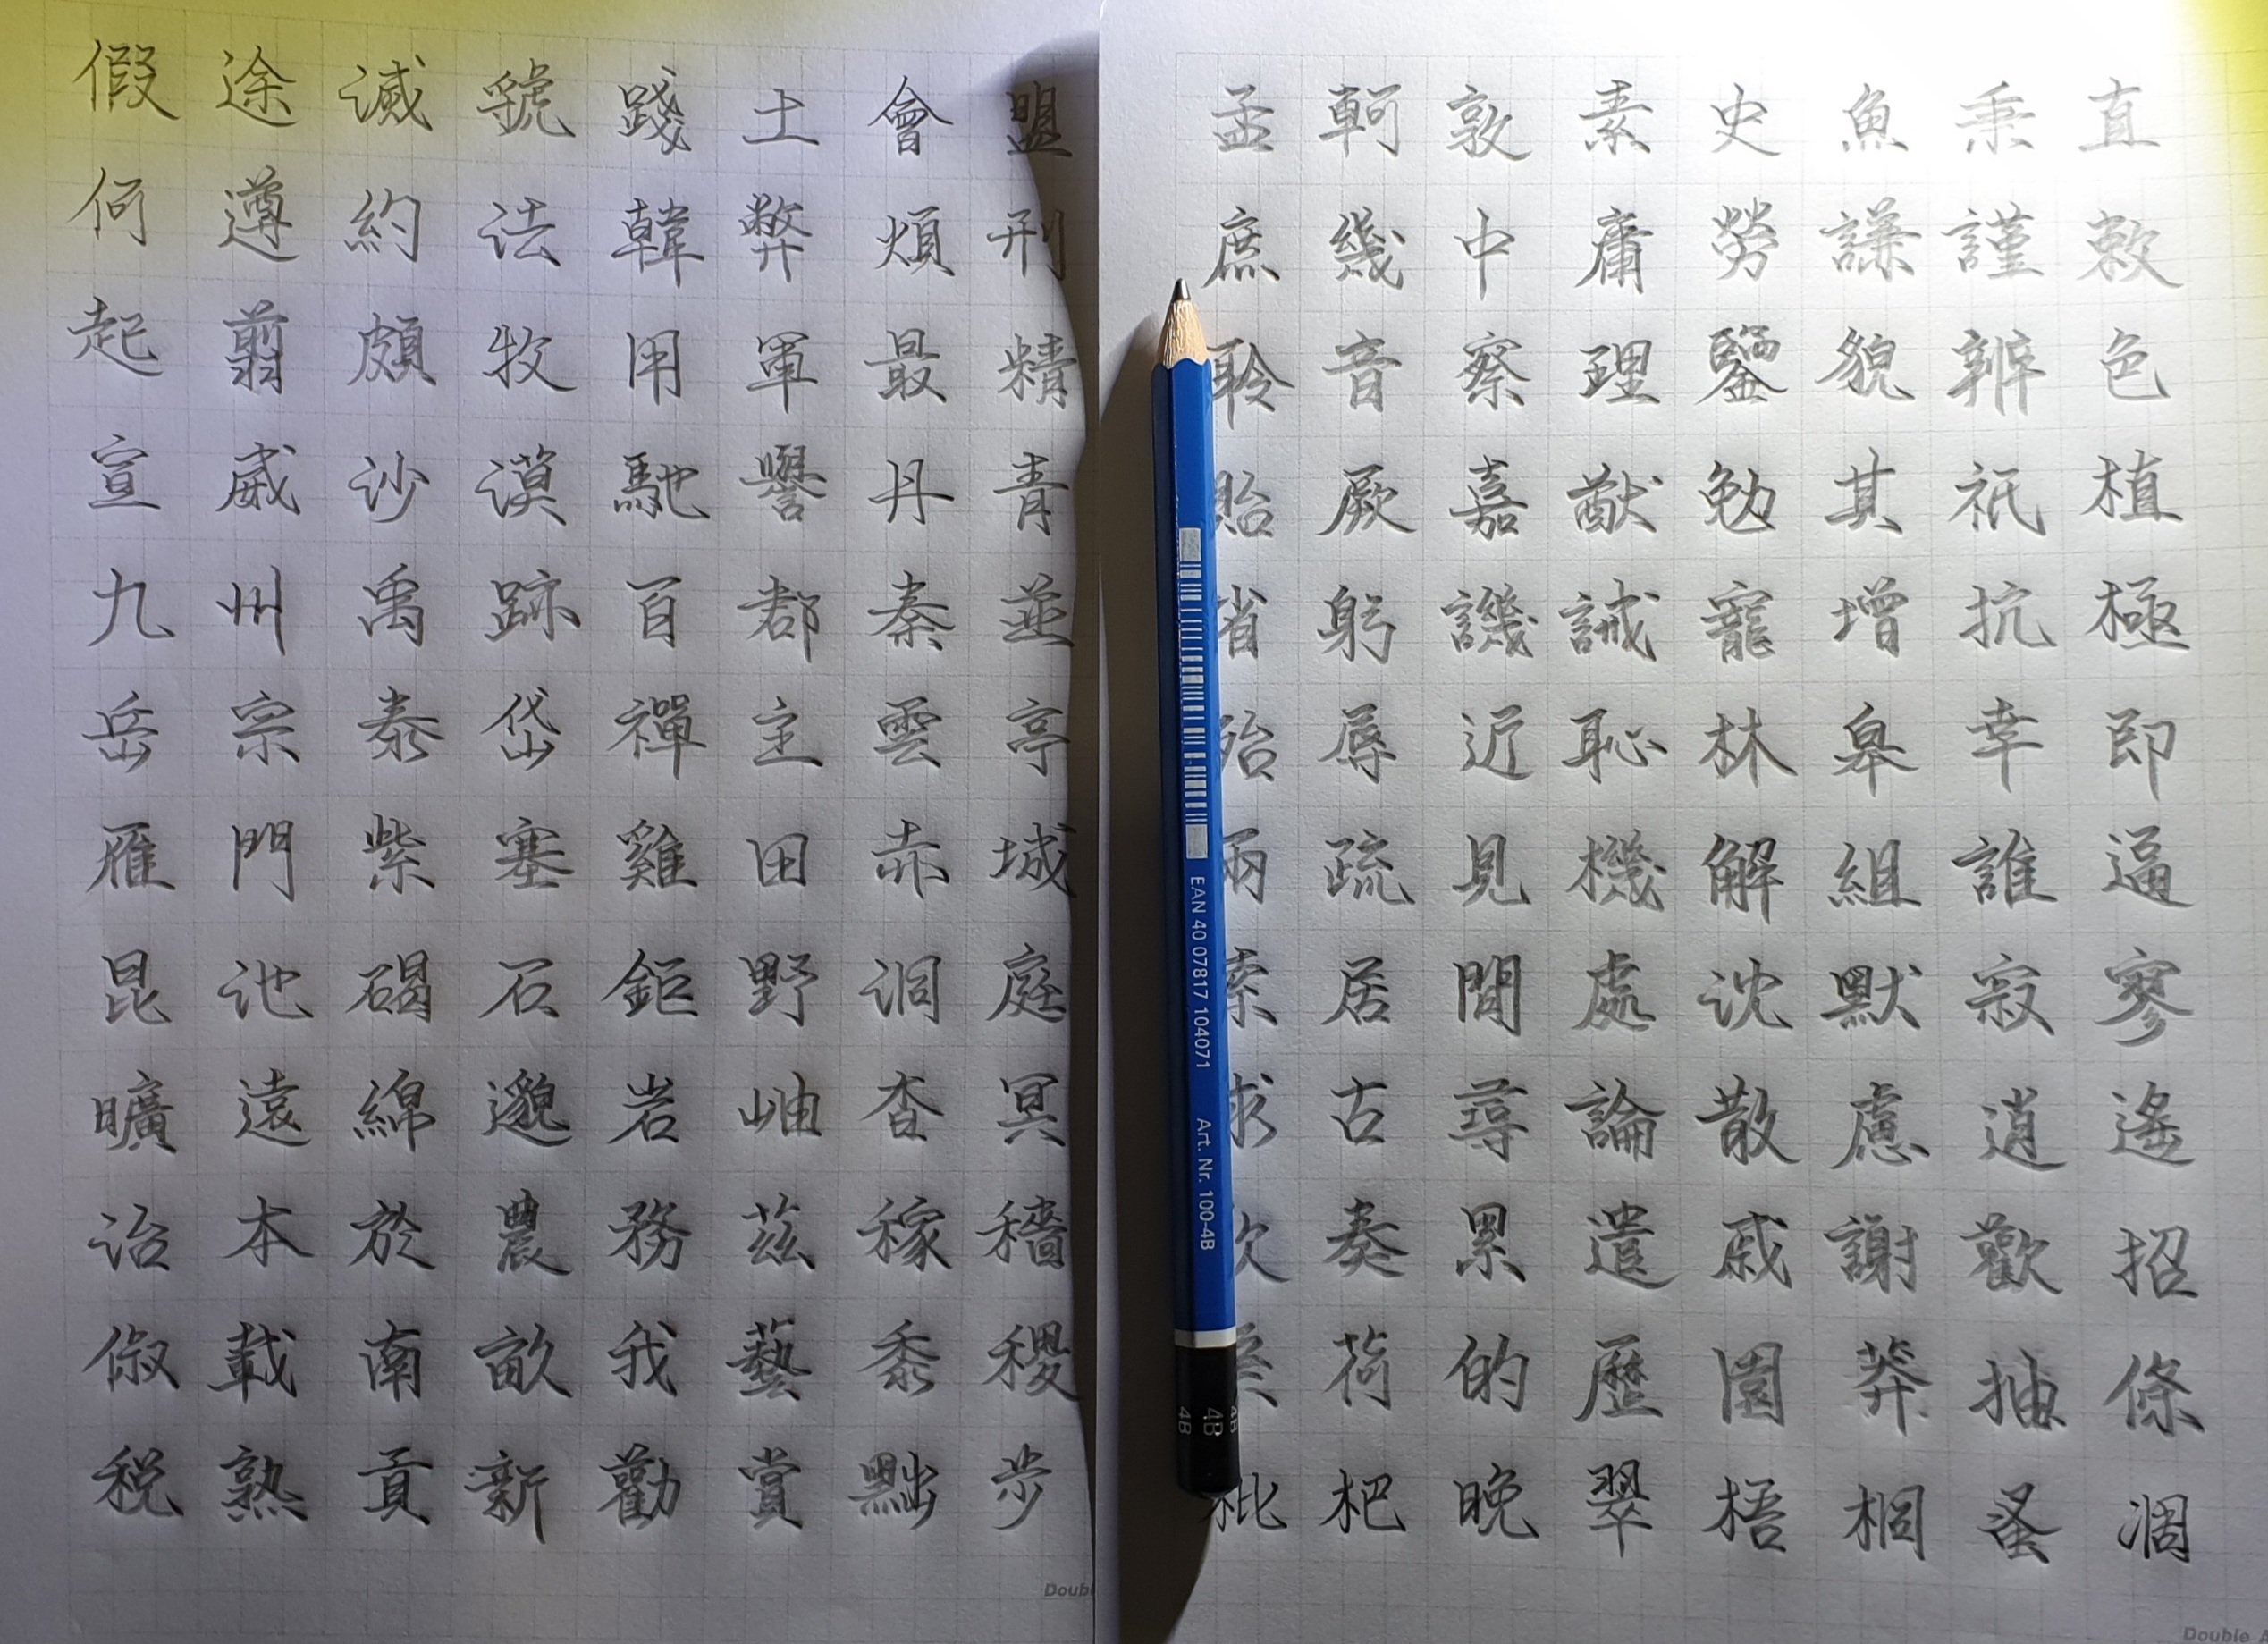 假途滅虢踐土會盟
何遵約法韓弊煩刑
起翦頗牧用軍最精
宣威沙漠馳譽丹青
九州禹跡百郡秦並
岳宗泰岱禪主雲亭
雁門紫塞雞田赤城
昆池碣石鉅野洞庭
曠遠綿邈岩岫杳冥
治本於農務茲稼穡
俶載南畝我藝黍稷
税熟貢新勸賞黜步
Doubl
孟軻敦素史魚秉直
庶幾中庸勞謙謹敕
聆音察理鑒貌辨色
貽厥嘉猷勉其祗植
省躬譏誡寵增抗極
殆辱近恥林皋幸即
兩疏見機解組誰逼
索居間處沈默寂寥
求古尋論散慮逍遙
奏累遣戚謝歡招
荷的歷園莽抽條
枇杷晚翠梧桐蚤凋
Double
EAN 40 07817 104071 Art. Nr. 100-4B
4B 4B 4B